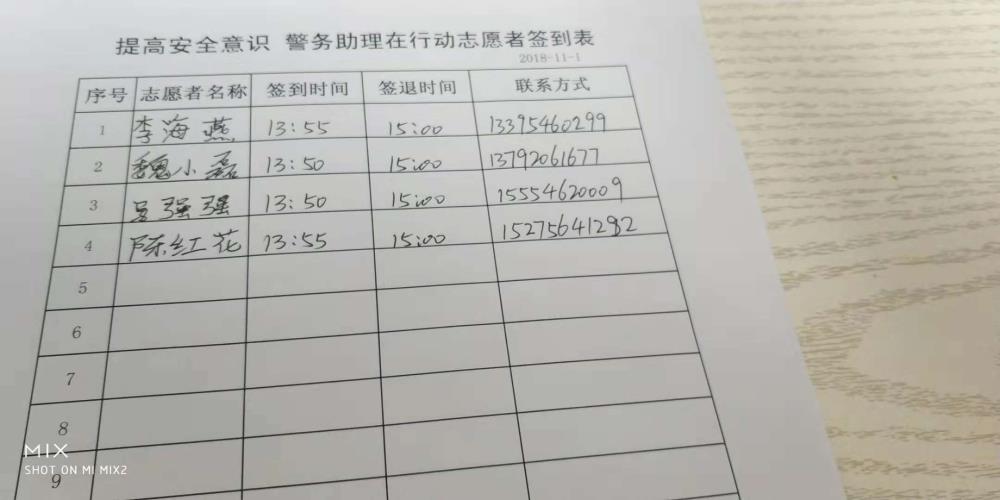 提高安全意识 警务助理在行动志愿者签到表
2018-11-1
序号 志愿者名称 签到时间 签退时间 联系方式
1 李海燕 13:55 15:00 13395460299
2 魏小磊 13:50 15:00 13792061677
3 吕强强 13:50 15:00 15554620009
4 陈红花 13:55 15:00 15275641282
5
6
7
8
9
MIX
SHOT ON MI MIX2